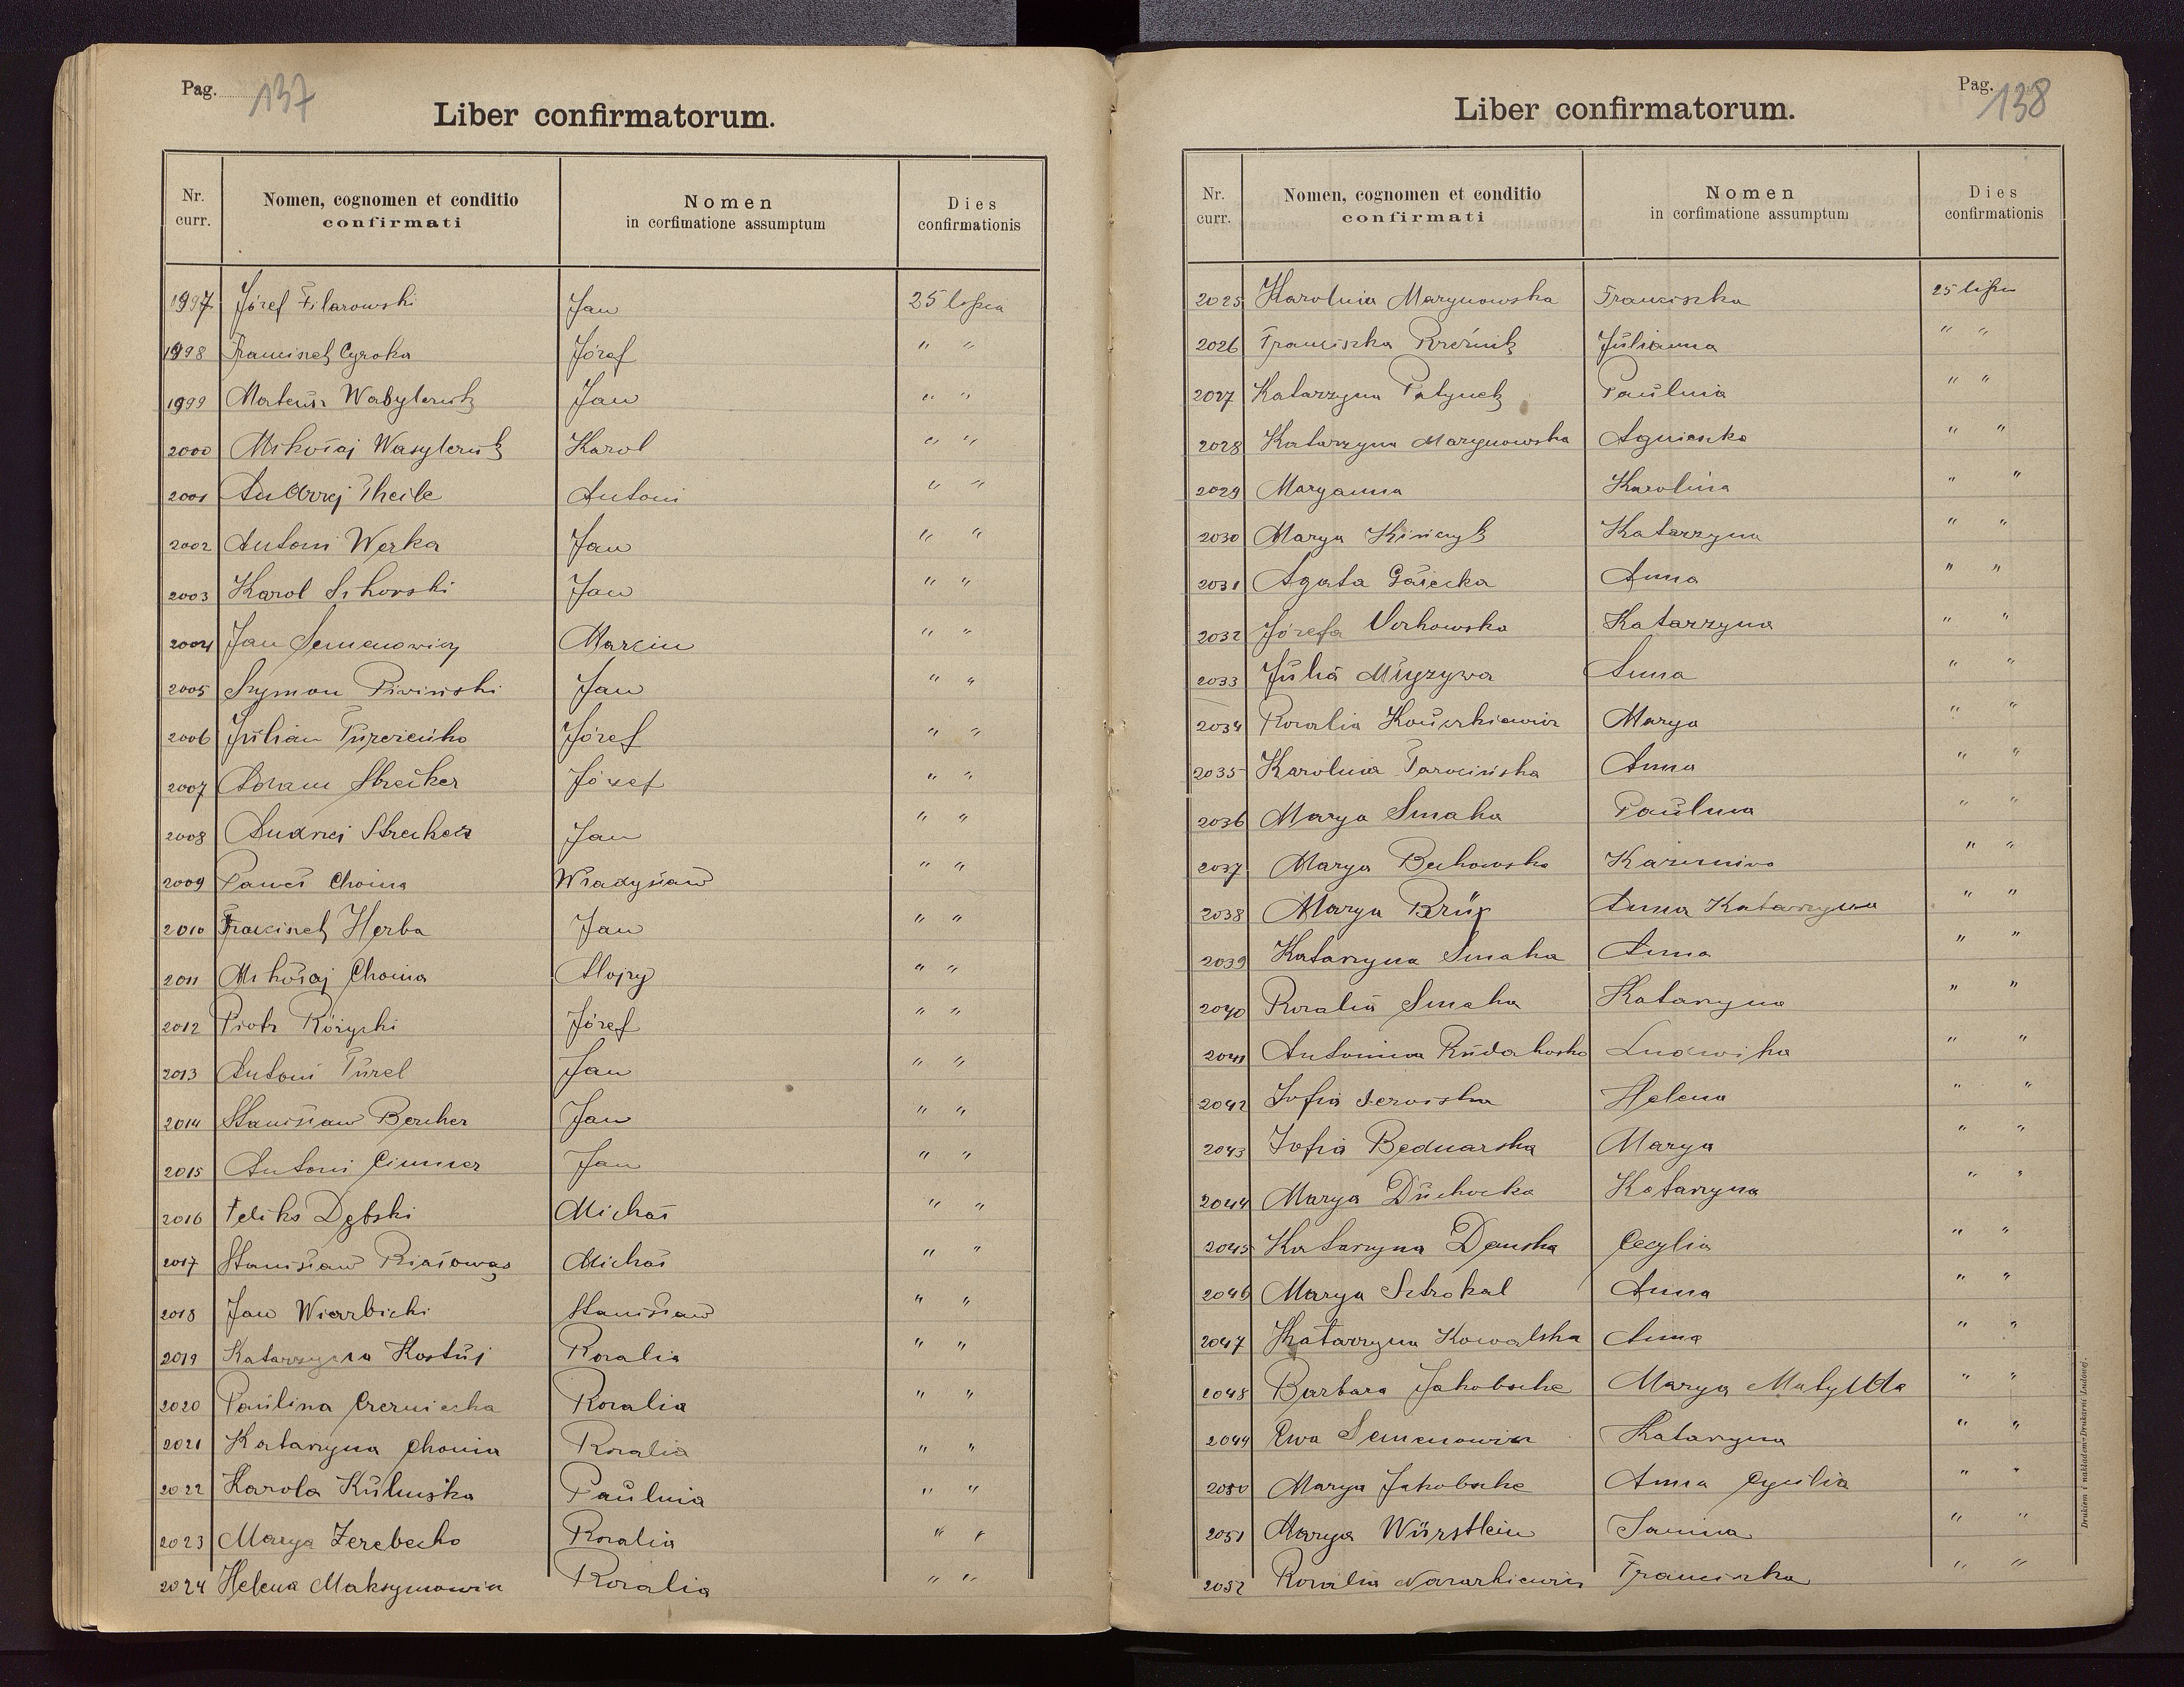 Pag. 137
Liber confirmatorum.
Nr. curr. Nomen, cognomen et conditio confirmati Nomen in corfimatione assumptum Dies confirmationis
1997 Józef Filarowski Jan 25 lipca
1998 Franciszek Cyroka Józef " "
1999 Mateusz Wabylczuk Jan " "
2000 Mikołaj Wasylczuk Karol " "
2001 Andrzej Theile Antoni " "
2002 Antoni Werka Jan " "
2003 Karol Sikorski Jan " "
2004 Jan Semenowicz Marcin " "
2005 Szymon Piwiński Jan " "
2006 Julian Józef " "
2007 Adam Strecker Józef " "
2008 Andrzej Strecker Jan " "
2009 Paweł Choina Władysław " "
2010 Franciszek Herba Jan " "
2011 Mikołaj Choina Alojzy " "
2012 Piotr Różycki Józef " "
2013 Antoni Turel Jan " "
2014 Stanisław Bercher Jan " "
2015 Antoni Cimmer Jan " "
2016 Feliks Dębski Michał " "
2017 Stanisław Białowąs Michał " "
2018 Jan Wierbicki Stanisław " "
2019 Katarzyna Kostúj Rozalia " "
2020 Paulina Czerniecka Rozalia " "
2021 Katarzyna Choina Rozalia " "
2022 Karola Kulińska Paulina " "
2023 Marya Zerebecka Rozalia " "
2024 Helena Maksymowicz Rozalia " "
Pag. 138
Liber confirmatorum.
Nr. curr. Nomen, cognomen et conditio confirmati Nomen in corfimatione assumptum Dies confirmationis
2025 Karolina Marynowska Franciszka 25 lipca
2026 Franciszka Rzeźnik Julianna " "
2027 Katarzyna Patynek Paulina " "
2028 Katarzyna Marynowska Agnieszka " "
2029 Maryanna Karolina " "
2030 Marya Kińczyk Katarzyna " "
2031 Agata Gałecka Anna " "
2032 Józefa Workowska Katarzyna " "
2033 Julia Anna " "
2034 Rozalia Marya " "
2035 Karolina Tarocińska Anna " "
2036 Marya Smaha Paulina " "
2037 Marya Bechowska Kazimira " "
2038 Marya Brüx Anna Katarzyna " "
2039 Katarzyna Smaha Anna " "
2040 Rozalia Smaha Katarzyna " "
2041 Antonina Rudakoska Ludwika " "
2042 Zofia Helena " "
2043 Zofia Bednarska Marya " "
2044 Marya Duchocka Katarzyna " "
2045 Katarzyna Denska Cecylia " "
2046 Marya Sctrokal Anna " "
2047 Katarzyna Kowalska Anna " "
2048 Barbara Jakobsche Marya Matylda " "
2049 Ewa Semenowicz Katarzyna " "
2050 Marya Jakobsche Anna Cycilia " "
2051 Marya Würstlein Janina " "
2052 Rozalia Nazarkiewicz Franciszka " "
Drukiem i nakładem Drukarni Ludowej.